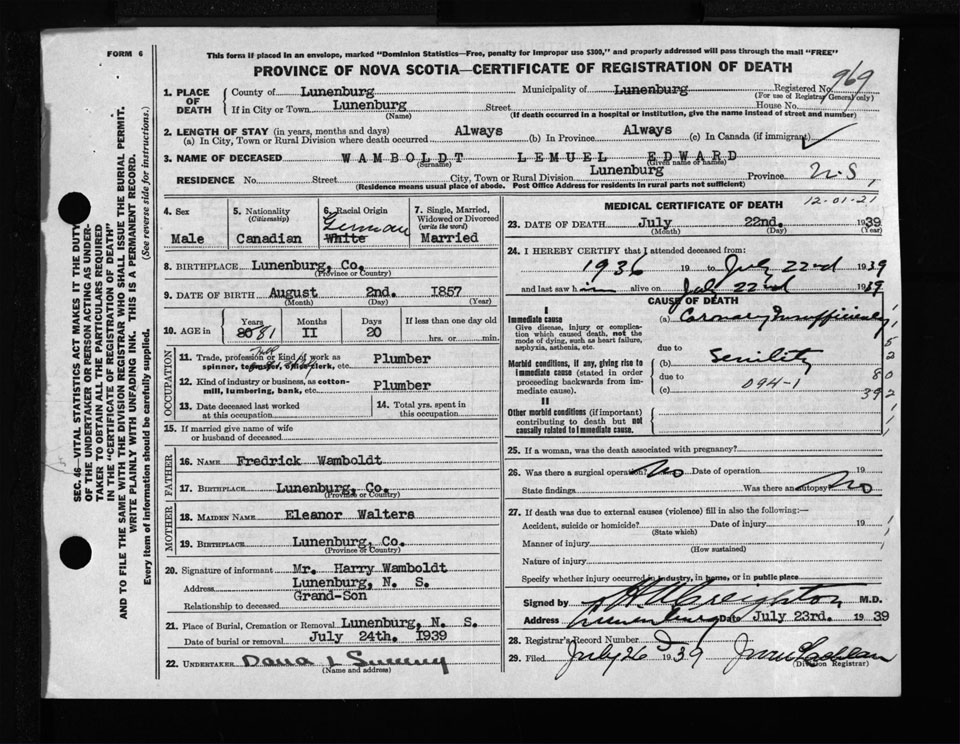 FORM 6
This form if placed in an envelope, marked "Dominion Statistics—Free, penalty for improper use $300," and properly addressed will pass through the mail "FREE"
PROVINCE OF NOVA SCOTIA—CERTIFICATE OF REGISTRATION OF DEATH
969
1. PLACE OF DEATH
County of Lunenburg Municipality of Lunenburg Registered No.
(For use of Registrar General only)
If in City or Town Lunenburg Street House No.
(Name) (If death occurred in a hospital or institution, give the name instead of street and number)
2. LENGTH OF STAY (in years, months and days)
(a) In City, Town or Rural Division where death occurred Always (b) In Province Always (c) In Canada (if immigrant) ✓
3. NAME OF DECEASED WAMBOLDT LEMUEL EDWARD
(Surname) (Given name or names)
RESIDENCE No. Street City, Town or Rural Division Lunenburg Province N.S.
(Residence means usual place of abode. Post Office Address for residents in rural parts not sufficient)
4. Sex
Male
5. Nationality (Citizenship)
Canadian
6. Racial Origin
German
White
7. Single, Married, Widowed or Divorced (write the word)
Married
8. BIRTHPLACE Lunenburg, Co.
(Province or Country)
9. DATE OF BIRTH August 2nd. 1857
(Month) (Day) (Year)
10. AGE in Years Months Days If less than one day
80 81 II 20 hrs. or min.
OCCUPATION
11. Trade, profession or kind of work as spinner, teamster, office clerk, etc. Plumber
12. Kind of industry or business, as cotton-mill, lumbering, bank, etc. Plumber
13. Date deceased last worked at this occupation
14. Total yrs. spent in this occupation
15. If married give name of wife or husband of deceased
FATHER
16. NAME Fredrick Wamboldt
17. BIRTHPLACE Lunenburg, Co.
(Province or Country)
MOTHER
18. MAIDEN NAME Eleanor Walters
19. BIRTHPLACE Lunenburg, Co.
(Province or Country)
20. Signature of informant Mr. Harry Wamboldt
Address Lunenburg, N. S.
Relationship to deceased Grand-Son
21. Place of Burial, Cremation or Removal Lunenburg, N. S.
Date of burial or removal July 24th. 1939
22. UNDERTAKER Dana L Sweeny
(Name and address)
MEDICAL CERTIFICATE OF DEATH
12-01-21
23. DATE OF DEATH July 22nd. 1939
(Month) (Day) (Year)
24. I HEREBY CERTIFY that I attended deceased from:
1936 19 to July 22nd 1939
and last saw him alive on July 22nd 1939
CAUSE OF DEATH
I
Immediate cause
Give disease, injury or complication which caused death, not the mode of dying, such as heart failure, asphyxia, asthenia, etc.
(a) Coronary Insufficiency
due to
Morbid conditions, if any, giving rise to immediate cause (stated in order proceeding backwards from immediate cause).
(b) Senility
due to
(c) 094-1
1
5
2
80
392
II
Other morbid conditions (if important) contributing to death but not causally related to immediate cause.
25. If a woman, was the death associated with pregnancy?
26. Was there a surgical operation? No Date of operation 19
State findings Was there an autopsy? No
27. If death was due to external causes (violence) fill in also the following:—
Accident, suicide or homicide? Date of injury 19
(State which)
Manner of injury
(How sustained)
Nature of injury
Specify whether injury occurred in industry, in home, or in public place
Signed by Creighton M.D.
Address Lunenburg Date July 23rd. 1939
28. Registrar's Record Number
29. Filed July 26 1939
(Division Registrar)
SEC. 46—VITAL STATISTICS ACT MAKES IT THE DUTY
OF THE UNDERTAKER OR PERSON ACTING AS UNDER-
TAKER TO OBTAIN ALL THE PARTICULARS REQUIRED
IN THE "CERTIFICATE OF REGISTRATION OF DEATH"
AND TO FILE THE SAME WITH THE DIVISION REGISTRAR WHO SHALL ISSUE THE BURIAL PERMIT.
WRITE PLAINLY WITH UNFADING INK. THIS IS A PERMANENT RECORD.
Every item of information should be carefully supplied. (See reverse side for instructions.)